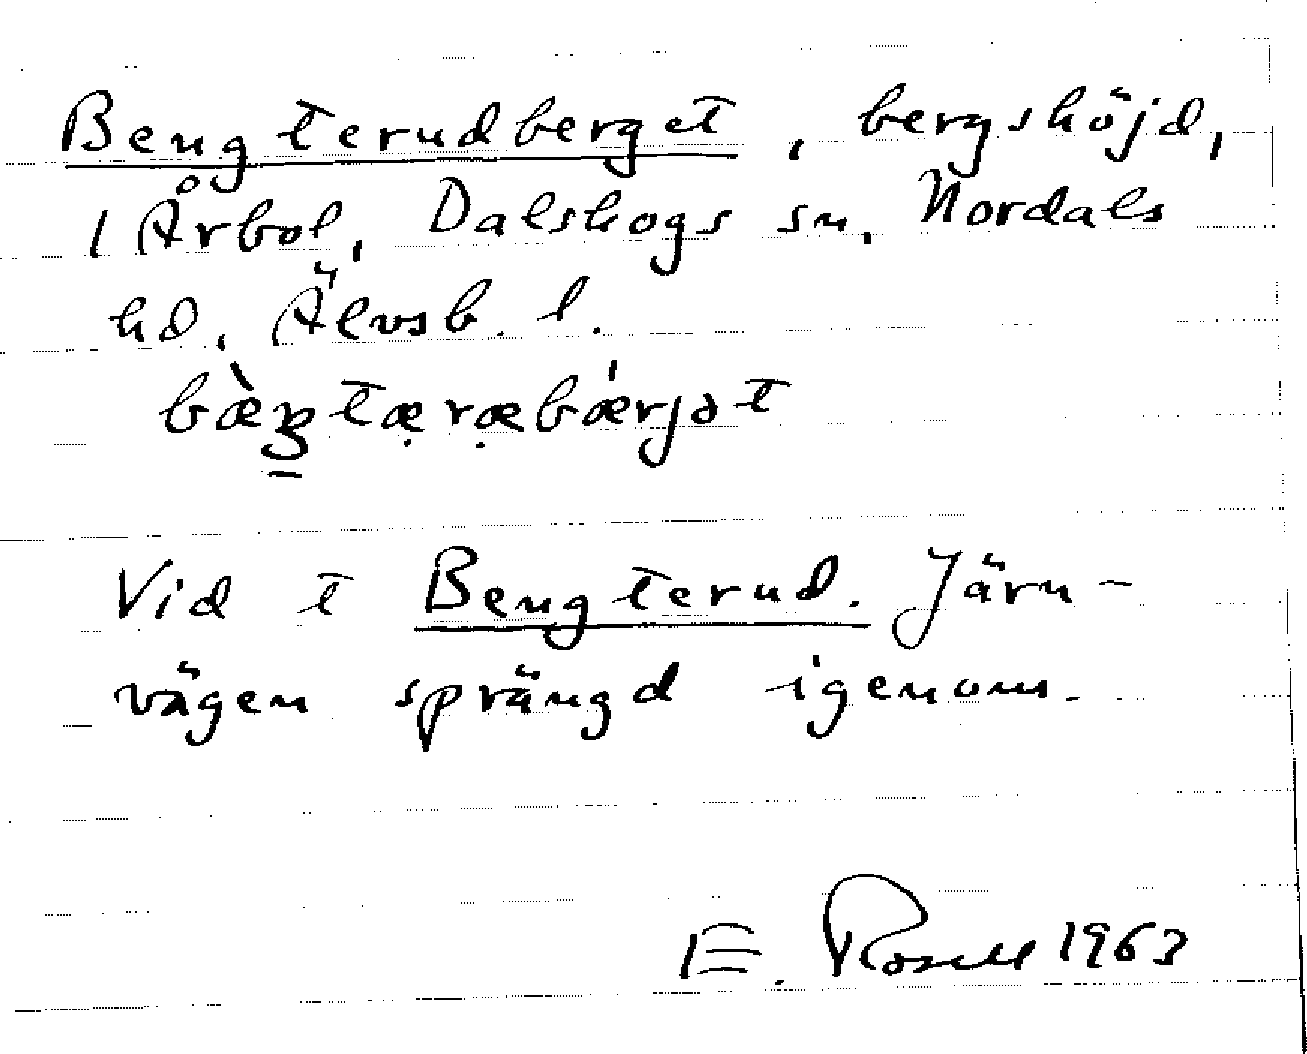 Bengterudberget, bergshöjd,
1 Årbol, Dalskogs sn, Nordals
hd, Älvsb. l.
bæ̀ꞬtæræbǽrjƏt
Vid t Bengterud. Järn-
vägen sprängd igenom.
E. Rosell 1963